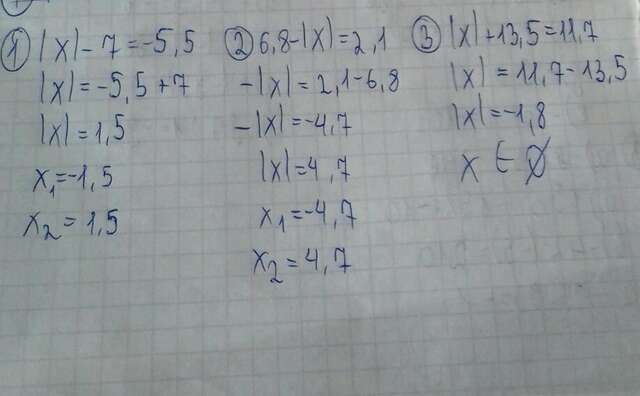 ① |x| - 7 = -5,5
|x| = -5,5 + 7
|x| = 1,5
x₁ = -1,5
x₂ = 1,5
② 6,8 - |x| = 2,1
-|x| = 2,1 - 6,8
-|x| = -4,7
|x| = 4,7
x₁ = -4,7
x₂ = 4,7
③ |x| + 13,5 = 11,7
|x| = 11,7 - 13,5
|x| = -1,8
x ∈ ∅